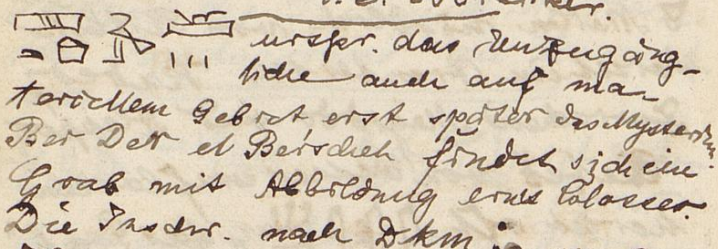 urspr. das Unzugäng-
liche auch auf ma-
teriellem Gebiet erst später das Mysterium.
Bei Der el Berscheh findet sich ein
Grab mit Abbildung eines Colosses.
Die Inschr. nach Dkm